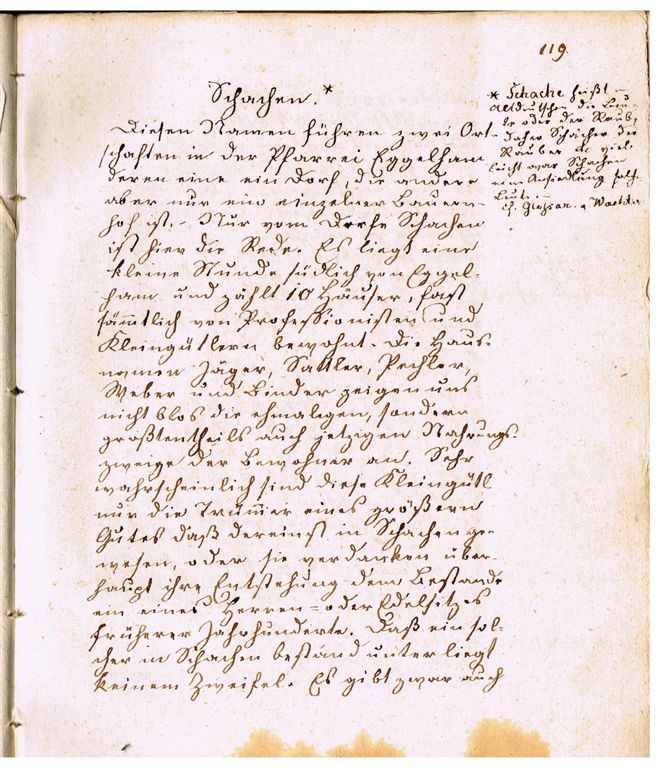 119.
Schachen.*
Diesen Namen führen zwei Ort-
schaften in der Pfarrei Eggelham
deren eine ein Dorf, die andere
aber nur ein einzelner Bauern-
hof ist. - Nur vom Dorfe Schachen
ist hier die Rede. Es liegt eine
kleine Stunde südlich von Eggel-
ham und zählt 10 Häuser, fast
sämmtlich von Professionisten und
Kleingütlern bewohnt. Die Haus-
namen Jäger, Sattler, Pechler,
Weber und Binder zeigen uns
nicht blos die ehmaligen, sondern
großtentheils auch jetzigen Nahrungs-
zweige der Bewohner an. Sehr
wahrscheinlich sind diese Kleingütl
nur die Trümmer eines größern
Gutes daß dereinst in Schachen ge-
wesen, oder sie verdanken über-
haupt ihre Entstehung dem Bestande
ein eines Herren= oder Edelsitzes
früherer Jahrhunderte. Daß ein sol-
cher in Schachen bestand unterliegt
keinem Zweifel. Es gibt zwar auch
* Schache heißt im
Altdeutschen die Beu-
te oder der Raub,
daher Schächer der
Räuber etc viel-
leicht war Schachen
eine Ansiedlung solch.
Leute. -
cf. Glossar. v. Wachter